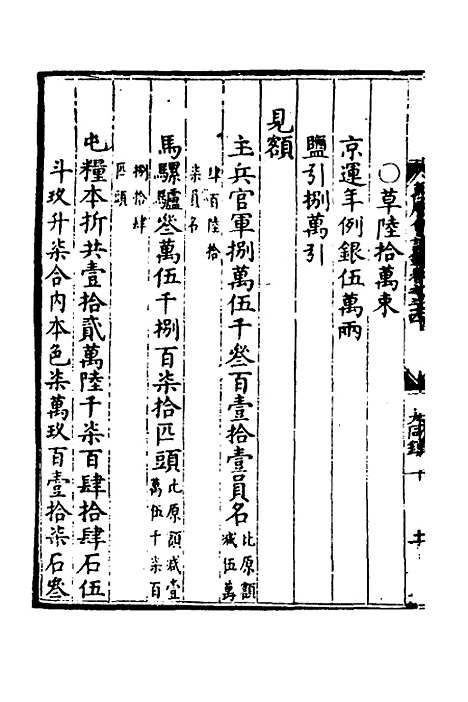 ○草陸拾萬束
京運年例銀伍萬兩
鹽引捌萬引
見額
主兵官軍捌萬伍千叄百壹拾壹員名比原額減伍萬
肆百陸拾
柒員名
馬騾驢叄萬伍千捌百柒拾匹頭比原額減壹萬伍千柒百
捌拾肆
匹頭
屯糧本折共壹拾貳萬陸千柒百肆拾肆石伍
斗玖升柒合內本色柒萬玖百壹拾柒石叄